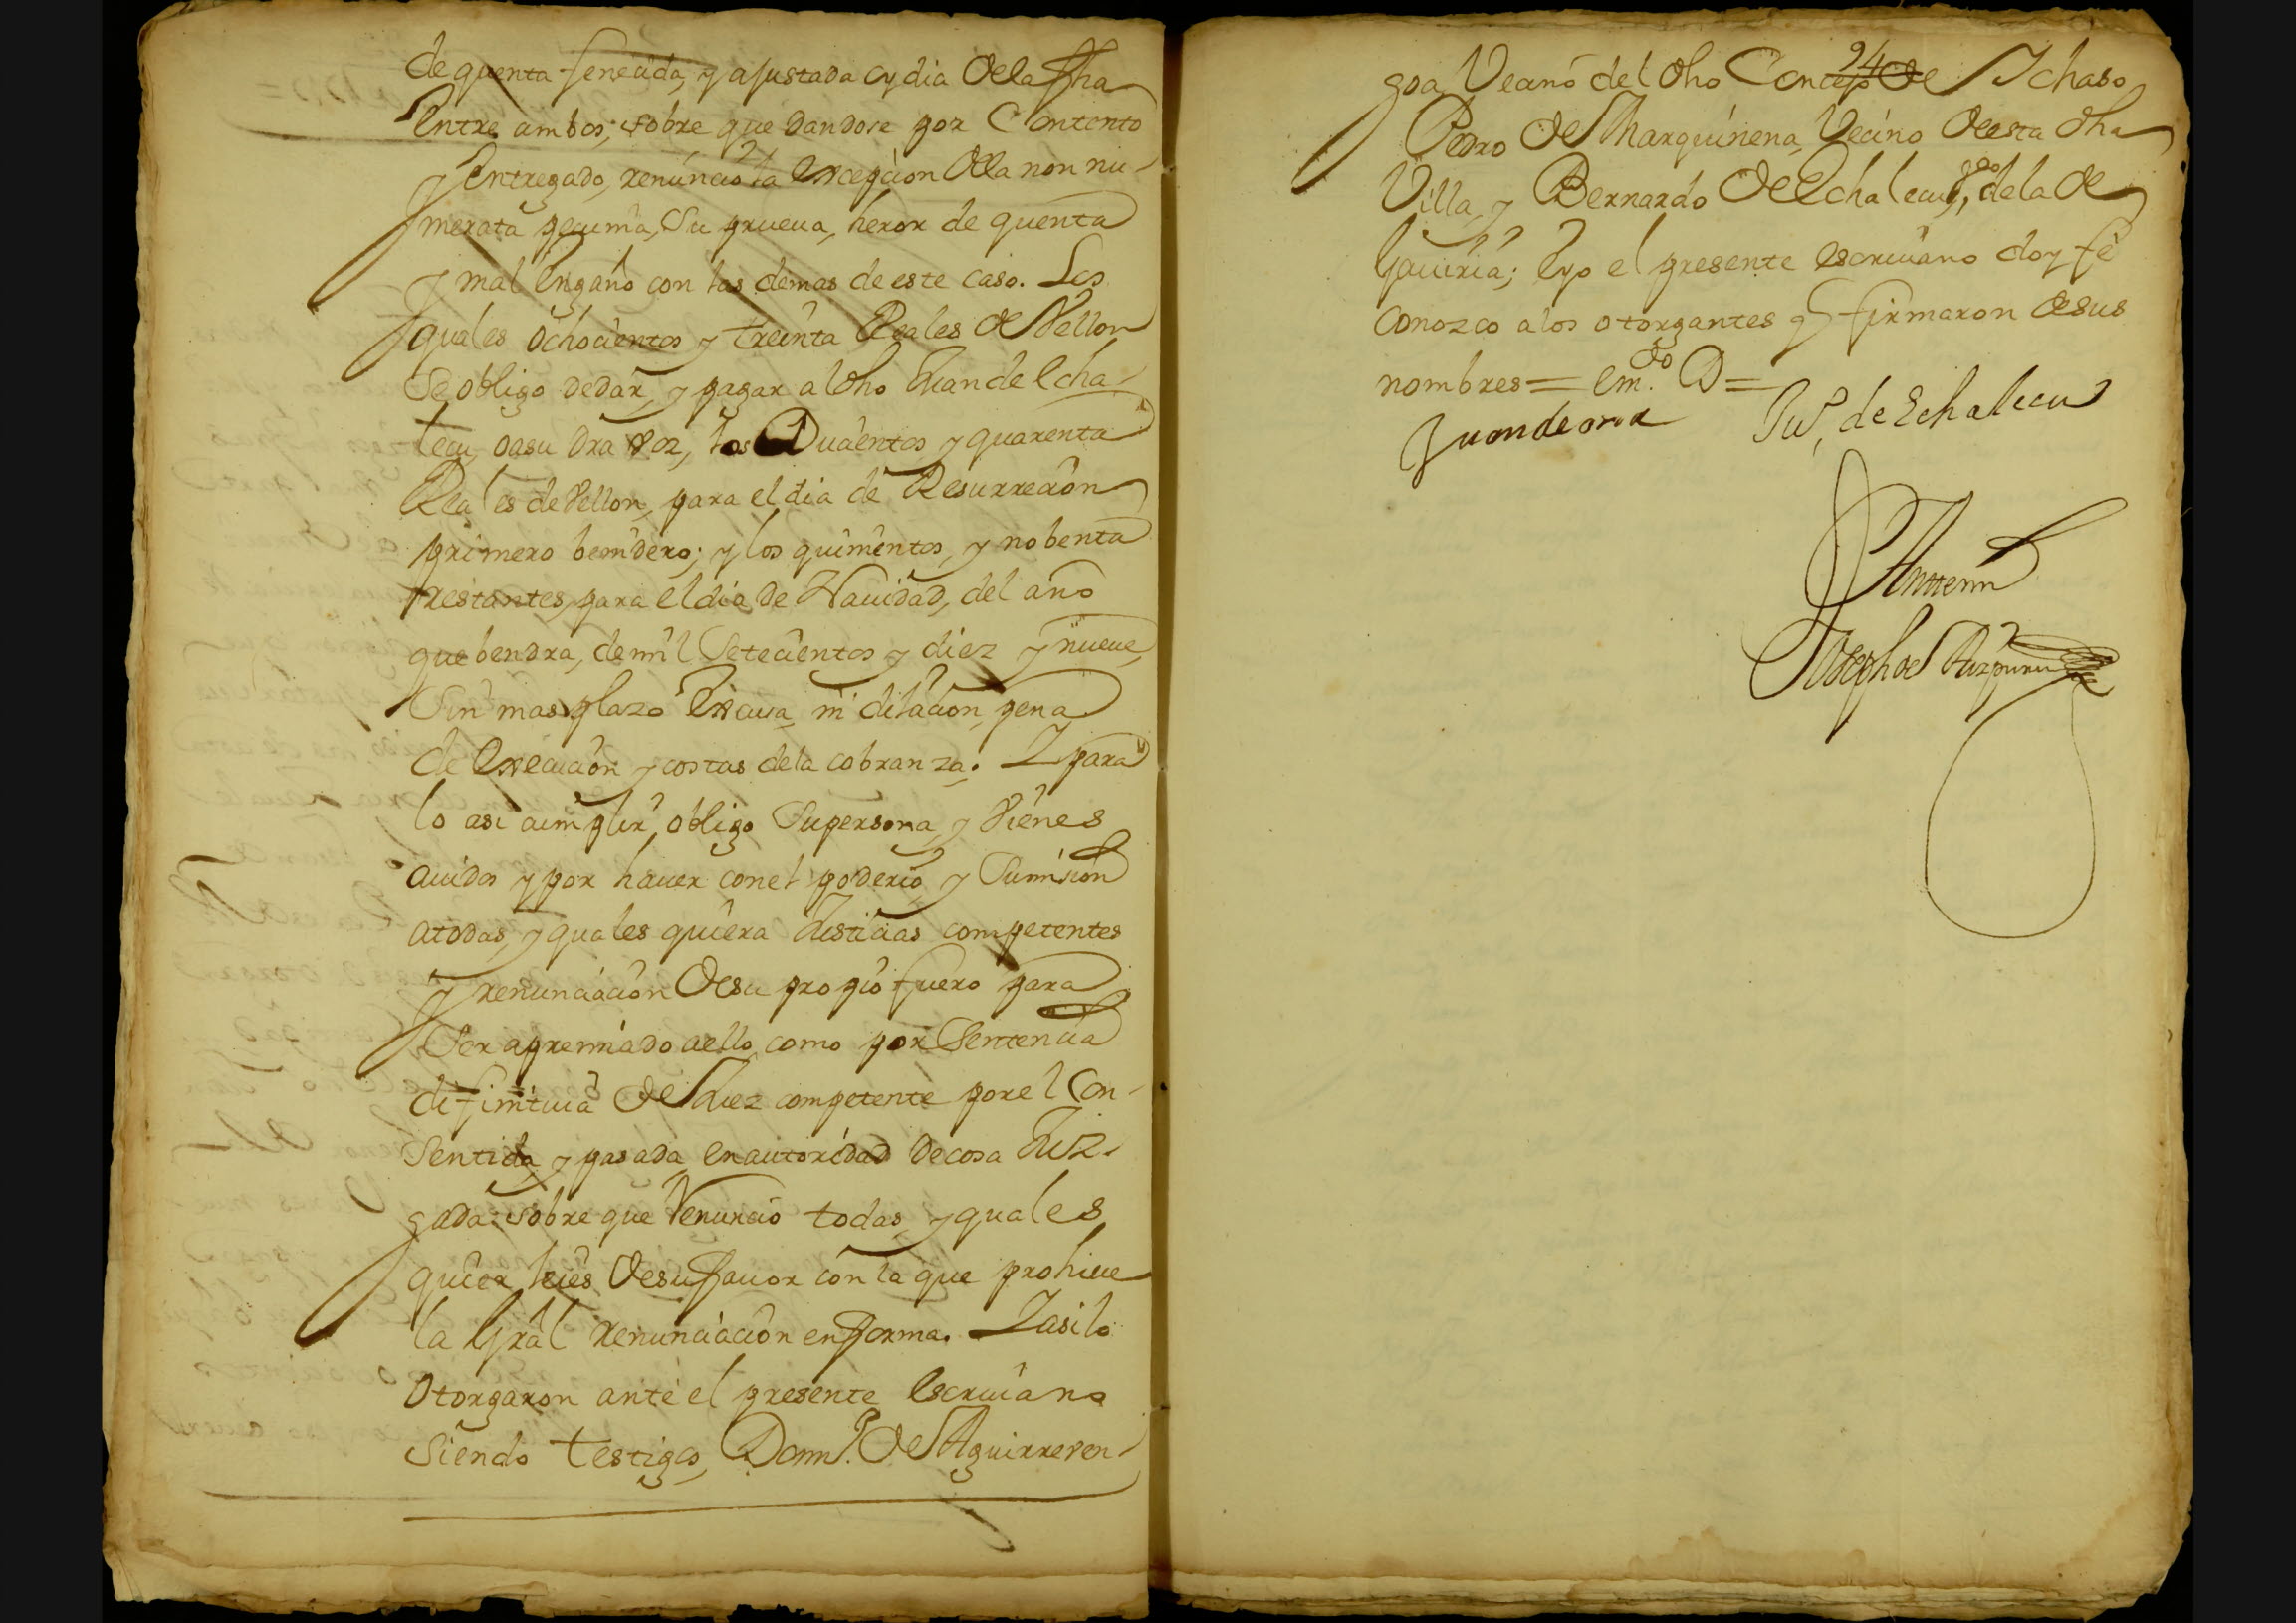 de quenta fenecida, y ajustada oy dia de la fha
Entre ambos; sobre que dandose por Contento
y Entregado, renuncio la excepcion de la non nu-
merata pecunia, su prueva, heror de quenta
y mal Engaño con las demas de este caso. Los
quales ochocientos y treinta Reales de Vellon
se obligo de dar, y pagar al dho Juan de Echa-
lecu, o a su dra voz, los Ducientos y quarenta
Reales de Vellon, para el dia de Resurrecion
primero benidero; y los quinientos, y nobenta
restantes, para el dia de Navidad, del año
que bendra, de mil Setecientos y diez y nueve,
Sin mas plazo Escusa, ni dilacion, pena
de execucion y costas de la cobranza. Y para
lo asi cumplir, obligo Su persona, y Vienes
avidos y por haver con el poderio, y Sumision
a todas, y quales quiera Justicias competentes
y renunciacion de su propio fuero para
Ser apremiado a ello, como por Sentencia
difinitiva de Juez competente por el Con-
sentida, y pasada en autoridad de cosa Juz-
gada: sobre que Renuncio todas, y quales
quier leies de su favor con la que prohive
la Gral renunciacion en forma. Y asi lo
otorgaron ante el presente escrivano
siendo testigos, Domin.º de Aguirreven-
94
goa Vecino del dho Concejo de Ichaso
Pedro de Marquinena, Vecino de esta dha
Villa, y Bernardo de Echalecu, de la de
Gaviria; E yo el presente escrivano doy fe
conozco a los otorgantes q firmaron de sus
nombres = em.do D =
Juan de oria Ju.º de Echalecu
Ante mi
Joseph de Aizpuru